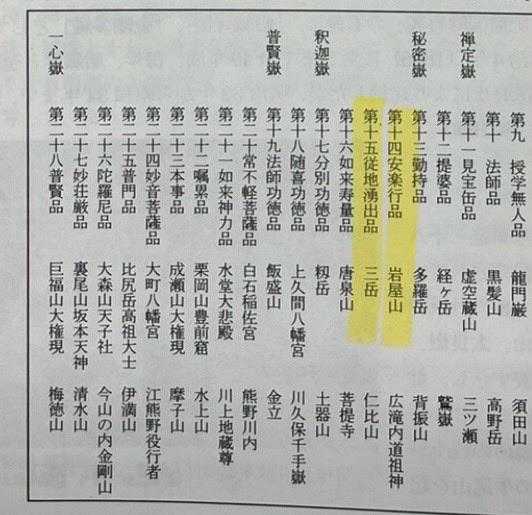 第九 授学無人品 龍門巌 須田山
第十 法師品 黒髪山 高野岳
禅定嶽 第十一見宝岳品 虚空蔵山 三ツ瀬
第十二提婆品 経ヶ岳 鷲嶽
秘密嶽 第十三勤持品 多羅岳 背振山
第十四安楽行品 岩屋山 広滝内道祖神
第十五従地湧出品 三岳 仁比山
第十六如来寿量品 唐泉山 菩提寺
釈迦嶽 第十七分別功徳品 籾岳 土器山
第十八随喜功徳品 上久間八幡宮 川久保千手嶽
普賢嶽 第十九法師功徳品 飯盛山 金立
第二十常不軽菩薩品 白石稲佐宮 熊野川内
第二十一如来神力品 水堂大悲殿 川上地蔵尊
第二十二嘱累品 栗岡山豊前窟 水上山
第二十三本事品 成瀬山大権現 摩子山
第二十四妙音菩薩品 大町八幡宮 江熊野役行者
第二十五普門品 比尻岳高祖大士 伊満山
第二十六陀羅尼品 大森山天子社 今山の内金剛山
第二十七妙荘厳品 裏尾山坂本天神 清水山
一心嶽 第二十八普賢品 巨福山大権現 梅徳山